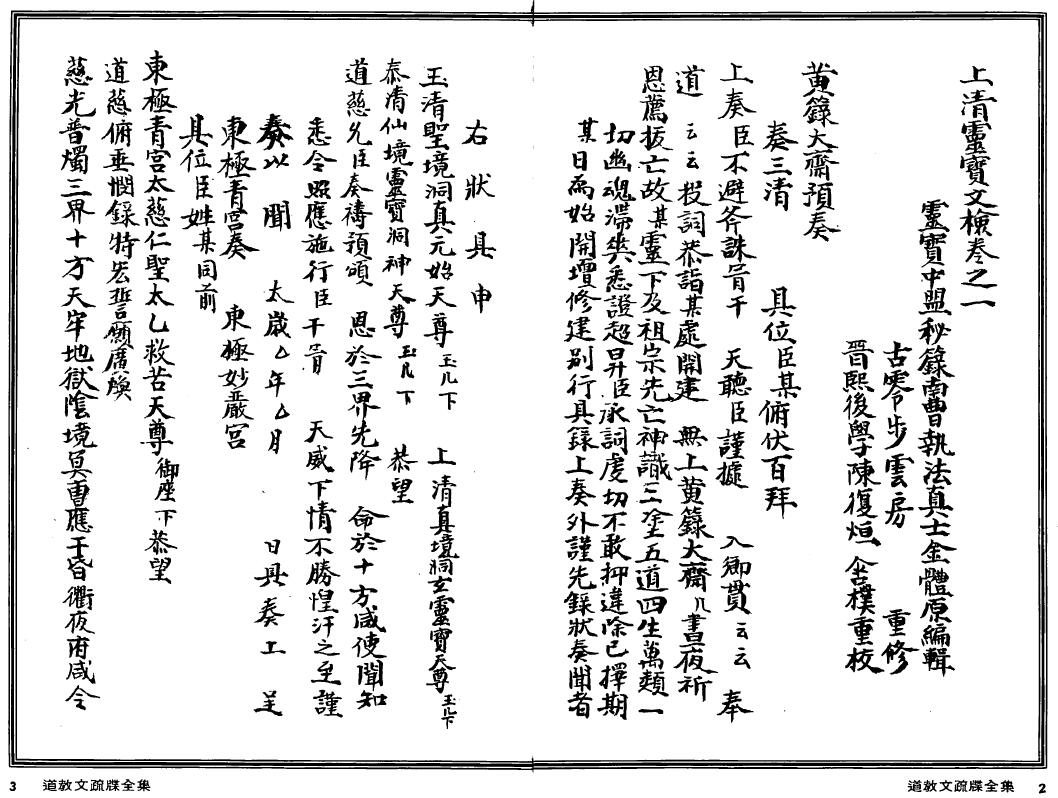 上清靈寶文檢卷之一
靈寶中盟秘錄南曹執法真士金體原編輯
古零步雲房 重修
晋熙後學陳復烜 含樸重校
黄籙大齋預奏
奏三清 具位臣某俯伏百拜
上奏臣不避斧誅冒干 天聽臣謹據 入鄉貫云云 奉
道 云云 投詞恭詣某處開建 無上黄籙大齋几晝夜祈
恩薦拔亡故某靈下及祖宗先亡神識三塗五道四生萬類一
切幽魂滯爽悉證超昇臣承詞虔切不敢抑違除已擇期
某日為始開壇修建别行具錄上奏外謹先錄狀奏聞者
右狀具申
玉清聖境洞真元始天尊 玉几下 上清真境洞玄靈寶天尊 玉几下
泰清仙境靈寶洞神天尊 玉几下 恭望
道慈允臣奏禱預頒 恩於三界先降 命於十方咸使聞知
悉令照應施行臣干冒 天威下情不勝惶汗之至謹
奏以聞 太歲厶年厶月 日具奏上呈
東極青宮奏 東極妙嚴宮
具位臣姓某同前
東極青宮太慈仁聖太乙救苦天尊 御座下恭望
道慈俯垂憫錄特宏誓願廣煥
慈光普燭三界十方天牢地獄陰境冥曹應干昏衢夜府咸令
3 道教文疏牒全集
道教文疏牒全集 2